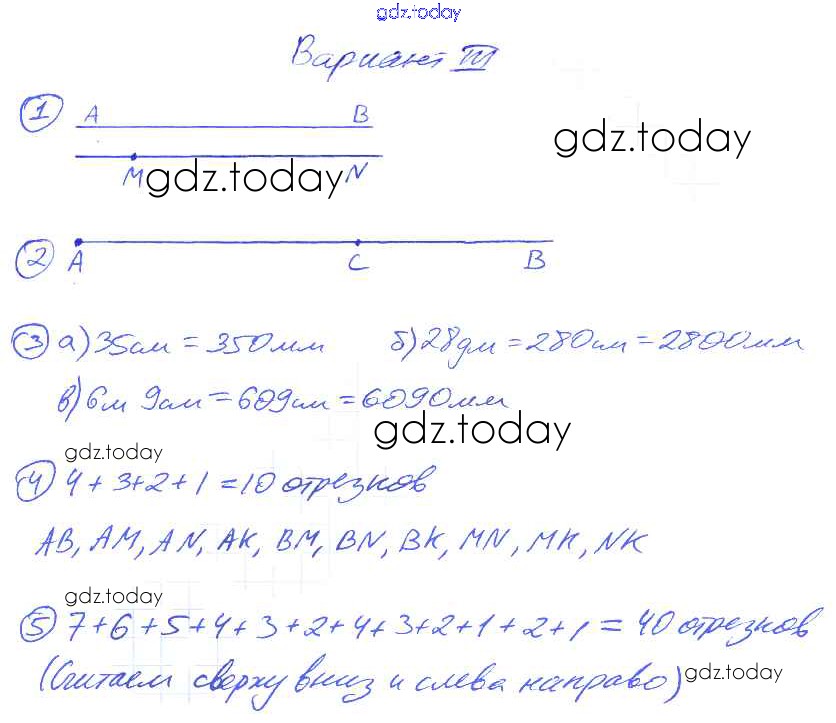 gdz.today
Вариант III
1 A B
gdz.today
M gdz.today N
2 A C B
3 а) 35см = 350мм б) 28дм = 280см = 2800мм
в) 6м 9см = 609см = 6090мм
gdz.today
gdz.today
4 4+3+2+1 = 10 отрезков
AB, AM, AN, AK, BM, BN, BK, MN, MK, NK
gdz.today
5 7+6+5+4+3+2+4+3+2+1+2+1 = 40 отрезков
(Считаем сверху вниз и слева направо) gdz.today